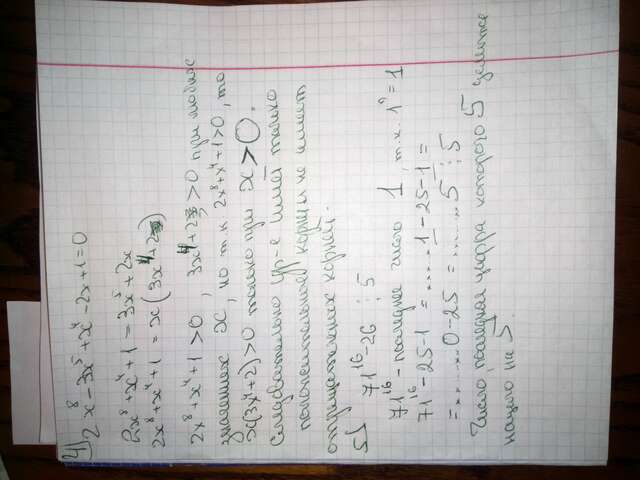 4)
2x⁸-3x⁵+x⁴-2x+1=0
2x⁸+x⁴+1=3x⁵+2x
2x⁸+x⁴+1=x(3x⁴+2)
2x⁸+x⁴+1>0, 3x⁴+2>0 при любых
значениях x, но т.к. 2x⁸+x⁴+1>0, то
x(3x⁴+2)>0 только при x>0.
Следовательно ур-е имеет только
положительные корни и не имеет
отрицательных корней.
5) 71¹⁶-26 ⋮ 5
71¹⁶-последнее число 1, т.к. 1ⁿ=1
71¹⁶-25-1=.....1-25-1=
=......0-25=......5 ⋮ 5
Число, последняя цифра которого 5 делится
нацело на 5.